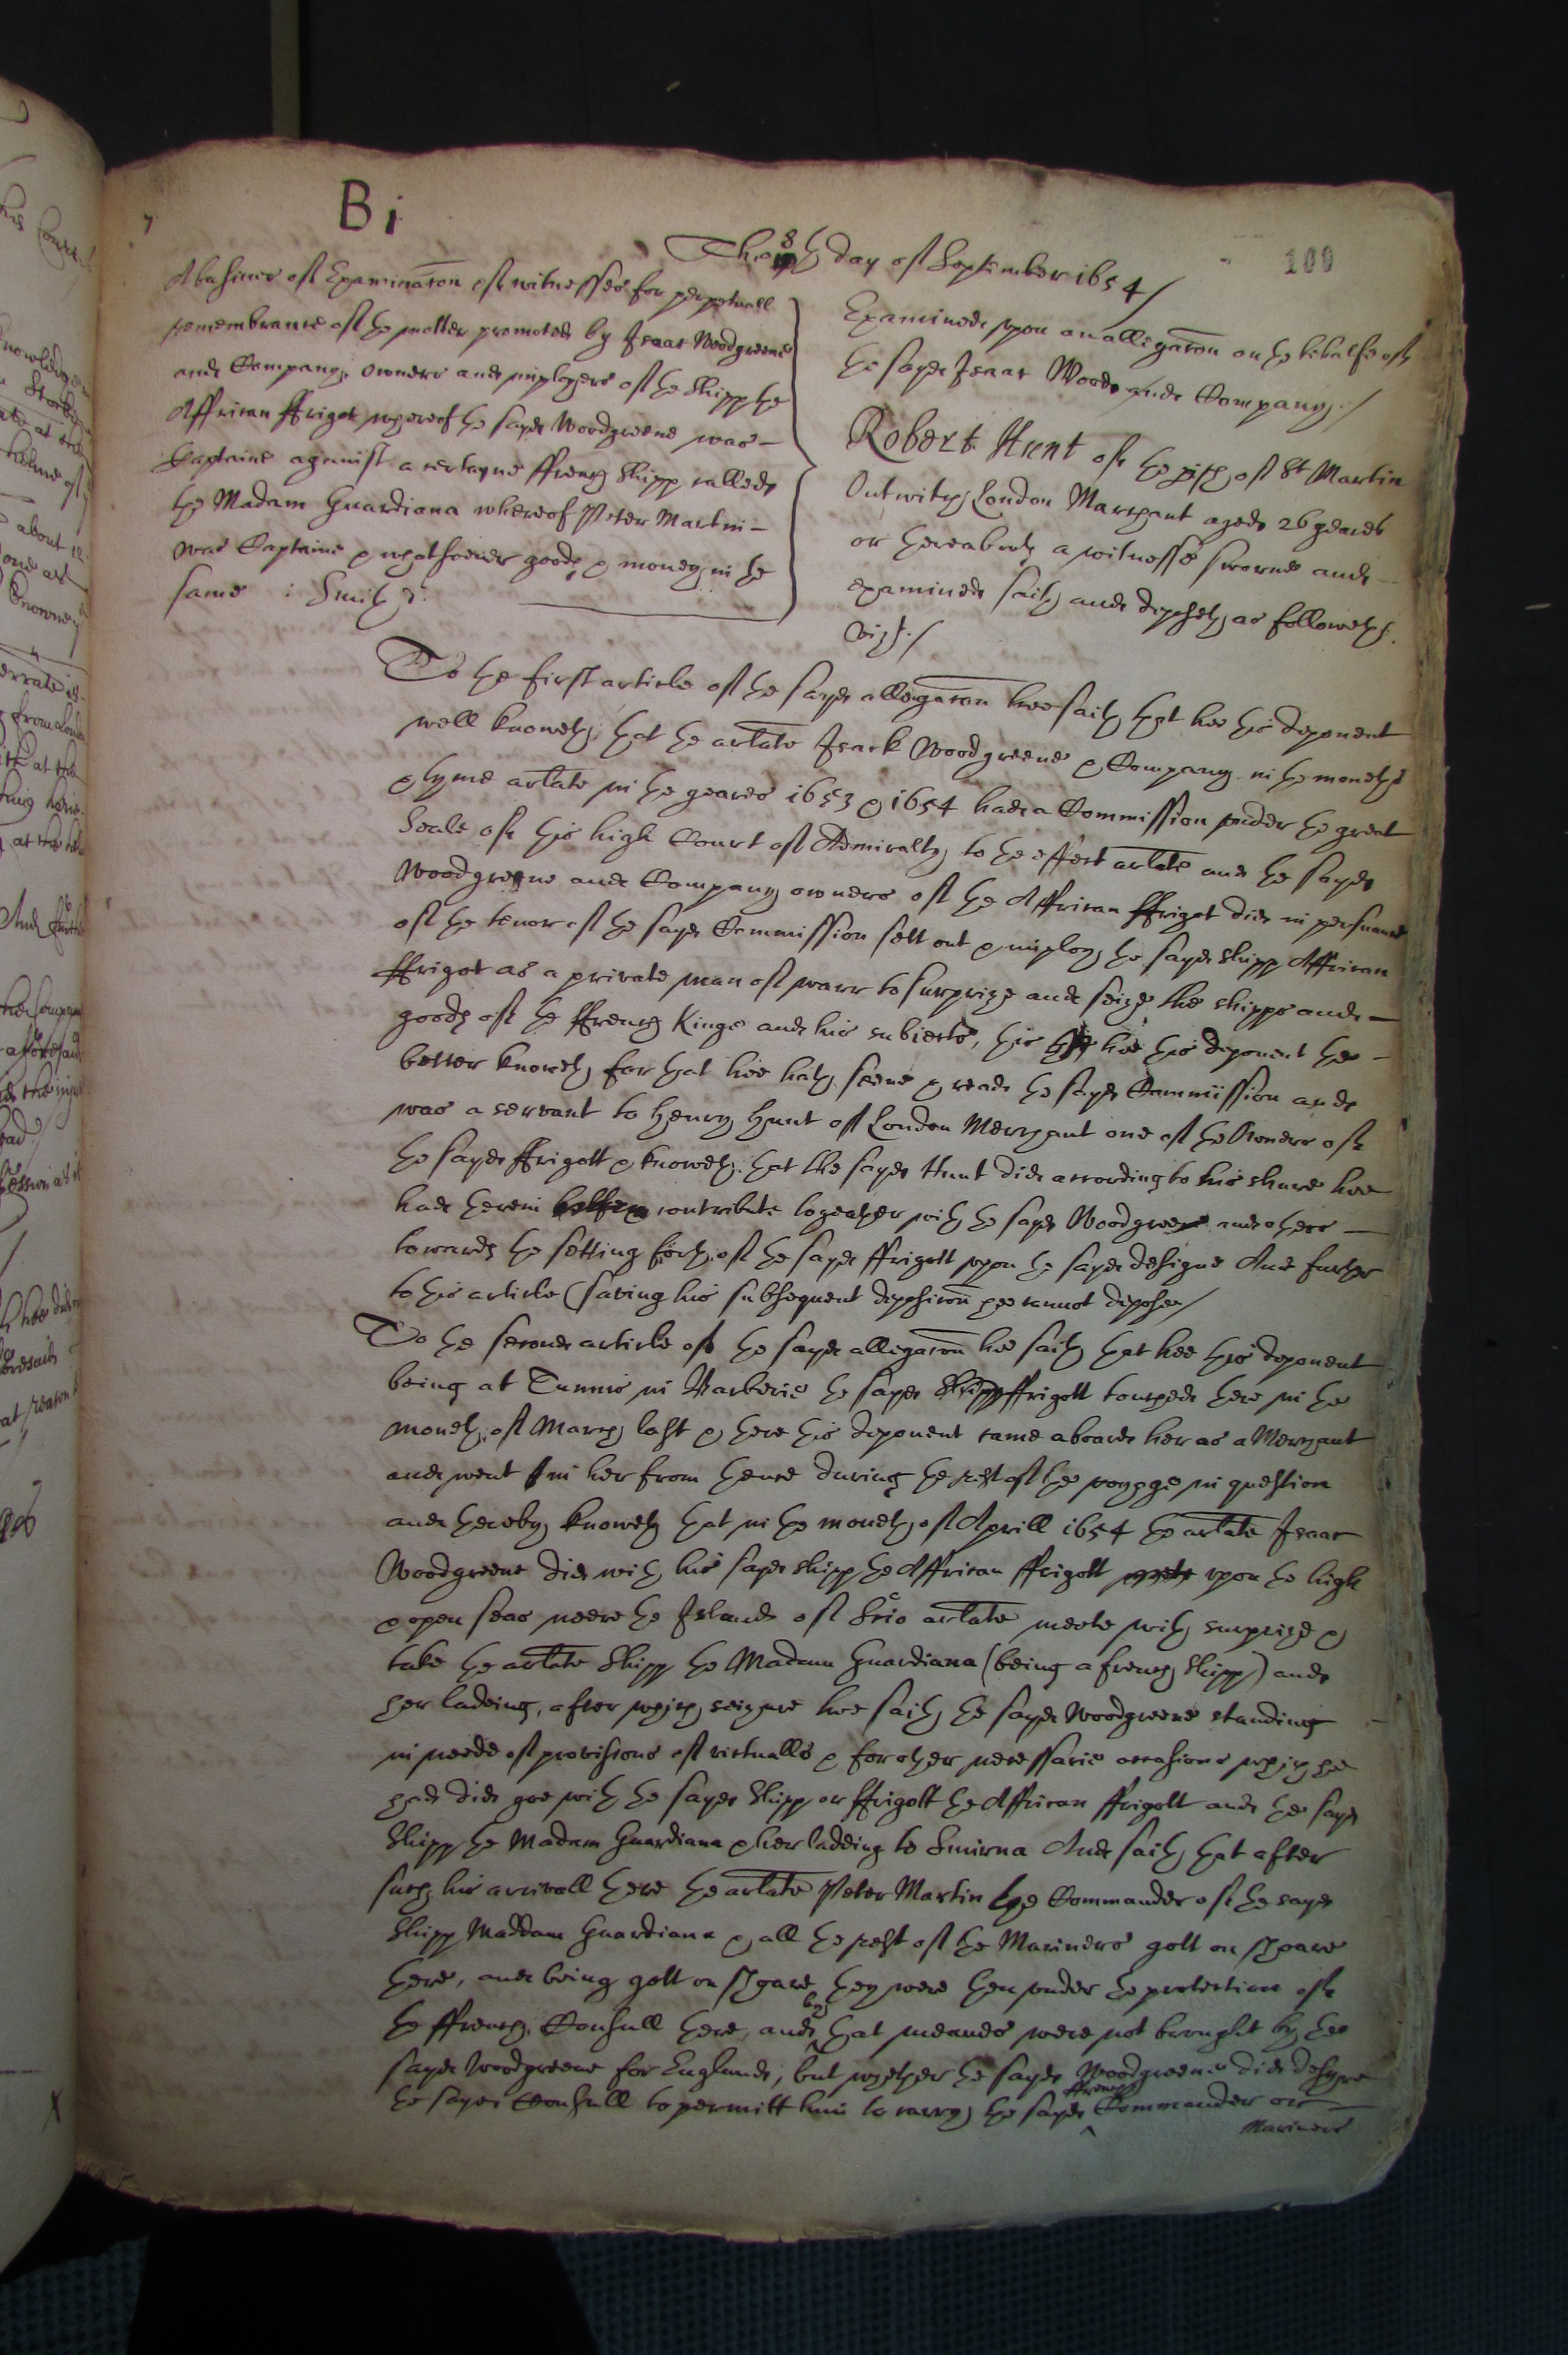 Bi
The 8th day of September 1654/
100
A busines of Examinacon of witnesses for perpetuall
remembrance of the matter promoted by Isaac Woodgreene
and Company, owners and imployers of the shipp the
Affrican ffrigot whereof the sayd Woodgreene was
Captaine against a certayne ffrench shipp called
the Madam Guardiana whereof Peter Martin
was Captaine & whatsoever goods & money in the
same : Smith d.
Examined upon an allegacon on the behalfe of
the sayd Isaac Wood and Company./
Robert Hunt of the pish of St Martin
Outwitch London Marchant aged 26 yeares
or thereabouts a witnesse sworne and
examined saith and deposeth as followeth.
vizt./
To the first article of the sayd allegacon hee saith that hee this deponent
well knoweth that the arlate Isack Woodgreene & Company in the moneths
& tyme arlate in the yeares 1653 & 1654 had a Commission under the great
Seale of this high Court of Admiralty to the effect arlate and the sayd
Woodgreene and Company owners of the Affrican ffrigot did in persuance
of the tenor of the sayd Commission sett out & imploy the sayd shipp Affrican
ffrigot as a private man of warr to surprize and seize the shipps and
goods of the ffrench Kinge and his subiects, this hee this deponent the
better knoweth for that hee hath seene & read the sayd Commission and
was a servant to Henry Hunt of London Merchant one of the Owners of
the sayd ffrigott & knoweth that the sayd Hunt did according to his share hee
had therein contribute togeather with the sayd Woodgreene and others
towards the setting forth of the sayd ffrigott upon the sayd designe And further
to this article (saving his subsequent deposicon hee cannot depose/
To the second article of the sayd allegacon hee saith that hee this deponent
being at Tunnis in Barberie the sayd shipp ffrigott touched there in the
moneth of March last & there this deponent came aboard her as a Merchant
and went in her from thence during the rest of the voyage in question
and thereby knoweth that in the moneth of Aprill 1654 the arlate Isaac
Woodgreene did with his sayd shipp the Affrican ffrigott upon the high
& open seas neere the Island of Scio arlate meete with surprize &
take the arlate shipp the Madam Guardiana (being a french shipp) and
her ladeing, after which seizure hee saith the sayd Woodgreene standing
in neede of provisions of victualls & for other necessarie occasions which hee
had did goe with the sayd shipp or ffrigott the Affrican ffrigott and the sayd
shipp the Madam Guardiana & her ladeing to Smirna And saith that after
such his arrivall there the arlate Peter Martin the Commander of the sayd
shipp Maddam Guardiana & all the rest of the Mariners gott on shoare
there, and being gott on shoare they were then under the protection of
the ffrench Consull there, and by that meanes were not brought by the
sayd Woodgreene for England, but whether the sayd Woodgreene did desyre
the sayd Consull to permitt him to carry the sayd ffrench Commander or
Mariners